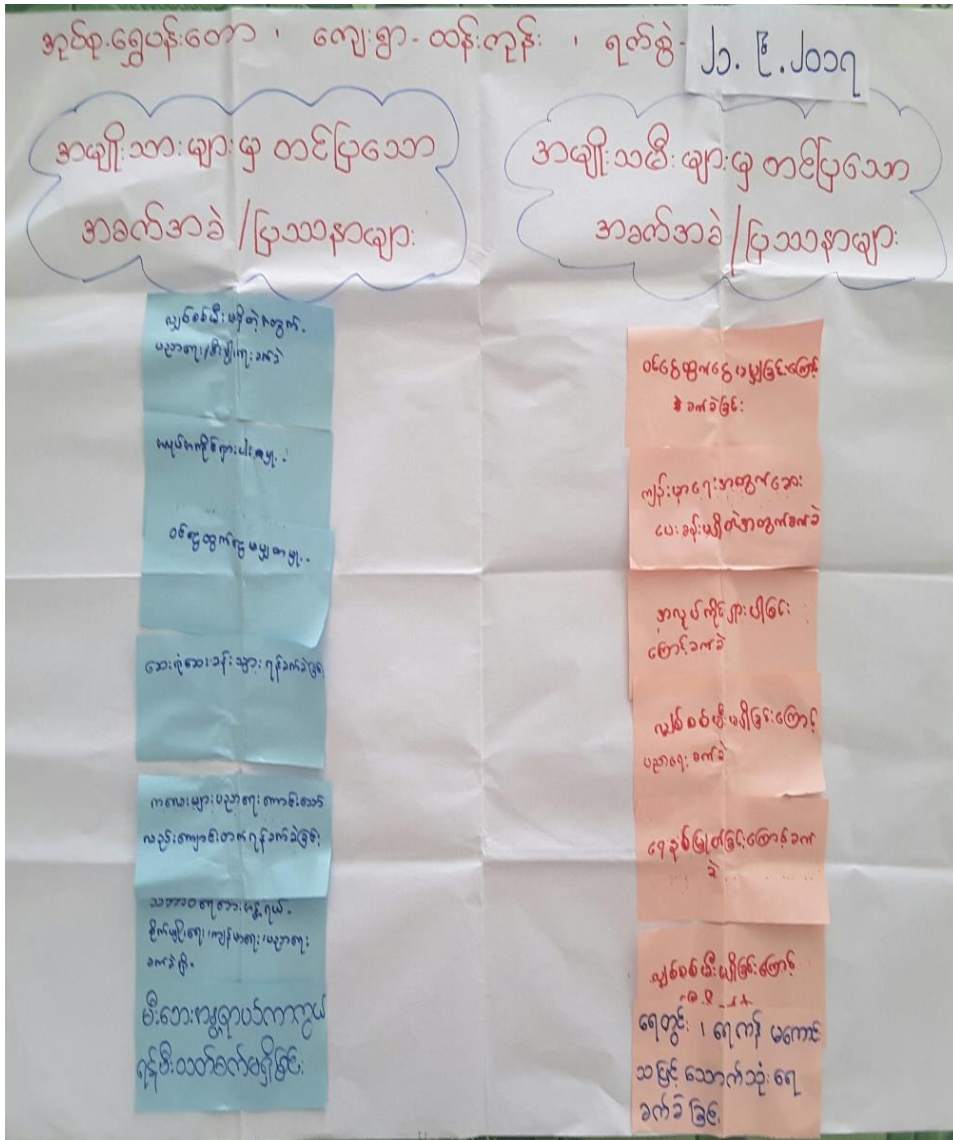 အုပ်စု-ရွှေပန်းတော ၊ ကျေးရွာ-ထန်းကုန်း ၊ ရက်စွဲ- ၂၁.၆.၂၀၁၇
အမျိုးသားများမှ တင်ပြသော
အခက်အခဲ/ပြဿနာများ
လျှပ်စစ်မီးမရှိတဲ့အတွက်
ပညာရေး/စီးပွါးရေးခက်ခဲ
အလုပ်အကိုင်ရှားပါးမှု.
ဝင်ငွေထွက်ငွေမမျှတမှု..
ဆေးရုံဆေးခန်းသွားရန်ခက်ခဲခြင်း
ကလေးများပညာရေးကောင်းသော်
လည်းကျောင်းတက်ရန်ခက်ခဲခြင်း
သဘာဝရေဘေးအန္တရာယ်.
စိုက်ပျိုးရေး၊ကျန်းမာရေး၊ပညာရေး
ခက်ခဲမှု.
မီးဘေးအန္တရာယ်ကာကွယ်
ရန်မီးသတ်စက်မရှိခြင်း
အမျိုးသမီးများမှ တင်ပြသော
အခက်အခဲ/ပြဿနာများ
ဝင်ငွေထွက်ငွေမမျှခြင်းကြောင့်
ခက်ခဲခြင်း
ကျန်းမာရေးအတွက်ဆေး
ပေးခန်းမရှိတဲ့အတွက်ခက်ခဲ
အလုပ်ကိုင်ရှားပါခြင်း
ကြောင့်ခက်ခဲ
လျှပ်စစ်မီးမရှိခြင်းကြောင့်
ပညာရေးခက်ခဲ
ရေနစ်မြုပ်ခြင်းကြောင့်ခက်
ခဲ
လျှပ်စစ်မီးမရှိခြင်းကြောင့်
ရေတွင်း ၊ ရေကန် မကောင်း
သဖြင့် သောက်သုံးရေ
ခက်ခဲခြင်း